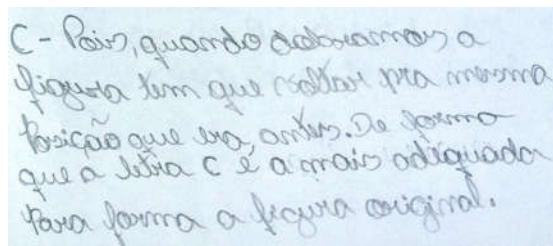 C - Pois, quando dobramos a
figura tem que voltar pra mesma
posição que era, antes. De forma
que a letra C é a mais adequada
para forma a figura original.